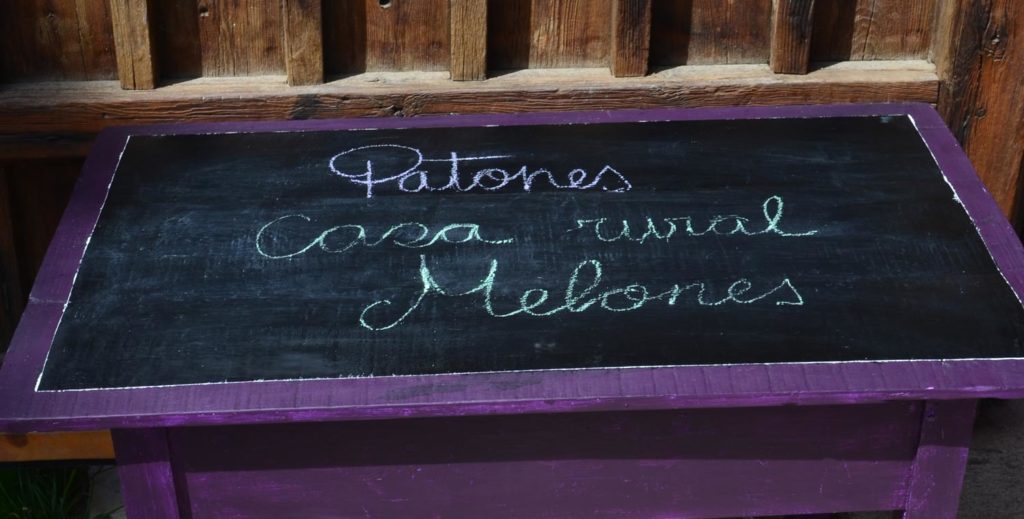 Patones
Casa rural
Melones